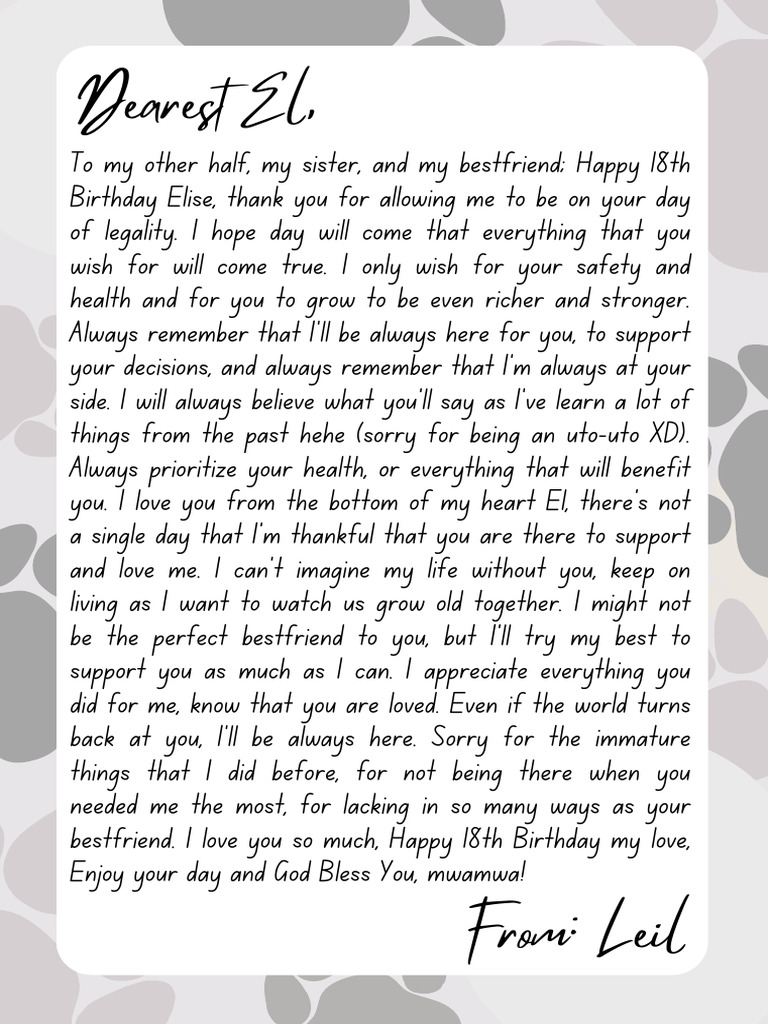 Dearest El,
To my other half, my sister, and my bestfriend; Happy 18th
Birthday Elise, thank you for allowing me to be on your day
of legality. I hope day will come that everything that you
wish for will come true. I only wish for your safety and
health and for you to grow to be even richer and stronger.
Always remember that I'll be always here for you, to support
your decisions, and always remember that I'm always at your
side. I will always believe what you'll say as I've learn a lot of
things from the past hehe (sorry for being an uto-uto XD).
Always prioritize your health, or everything that will benefit
you. I love you from the bottom of my heart El, there's not
a single day that I'm thankful that you are there to support
and love me. I can't imagine my life without you, keep on
living as I want to watch us grow old together. I might not
be the perfect bestfriend to you, but I'll try my best to
support you as much as I can. I appreciate everything you
did for me, know that you are loved. Even if the world turns
back at you, I'll be always here. Sorry for the immature
things that I did before, for not being there when you
needed me the most, for lacking in so many ways as your
bestfriend. I love you so much, Happy 18th Birthday my love,
Enjoy your day and God Bless You, mwamwa!
From: Leil